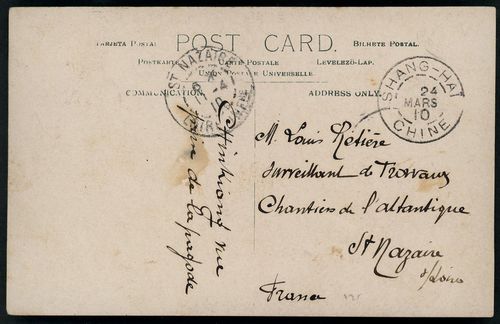 POST CARD.
TARJETA POSTAL
BILHETE POSTAL.
POSTKARTE
CARTE POSTALE
LEVELEZŐ-LAP.
UNION POSTALE UNIVERSELLE.
COMMUNICATION.
ADDRESS ONLY.
ST NAZAIRE
LOIRE
SHANG-HAI
24
MARS
10
CHINE
vue
prise de la pagode
M. Louis Rétière
Surveillant de Travaux
Chantiers de l'atlantique
St Nazaire
s/Loire
France